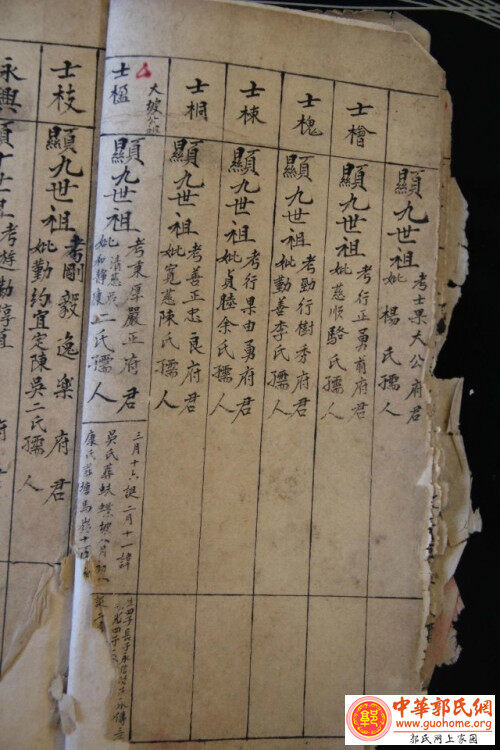 顯九世祖考士果大公府君
妣楊氏孺人
士檜
顯九世祖考行正勇甫府君
妣慈順駱氏孺人
士槐
顯九世祖考勁行樹秀府君
妣勤善李氏孺人
士棟
顯九世祖考行果由勇府君
妣貞睦余氏孺人
士桐
顯九世祖考善正忠良府君
妣寬惠陳氏孺人
士楹
顯九世祖考秉厚嚴正府君
二氏孺人
三月十六誕二月十一諱
吳氏葬蚨蝶坡八月初
康氏葬塘馬
士枝
顯九世祖考剛毅逸樂府君
妣勤約宜定陳吳二氏孺人
永興
中華郭氏網
www.guohome.org
郭氏网上家园